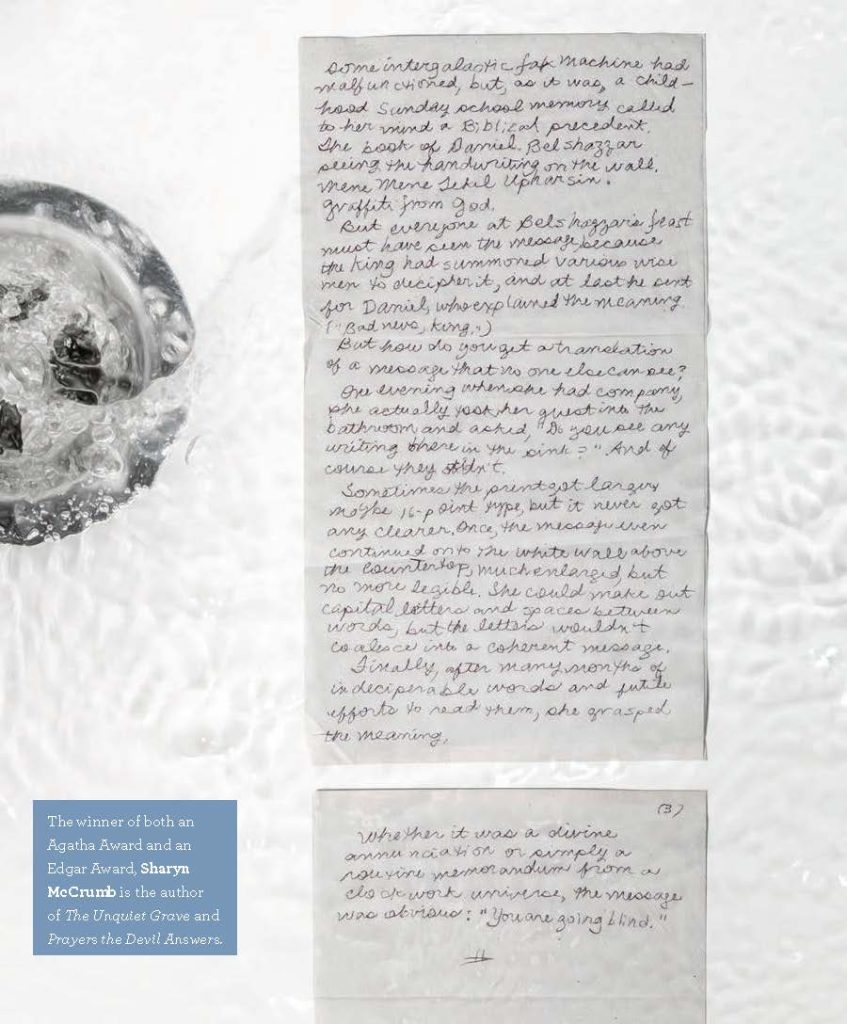 some intergalactic fax machine had
malfunctioned, but, as it was, a child-
hood Sunday school memory called
to her mind a Biblical precedent.
The book of Daniel. Belshazzar
seeing the handwriting on the wall.
Mene Mene Tekel Upharsin.
Graffiti from God.
But everyone at Belshazzar's feast
must have seen the message, because
the King had summoned various wise
men to decipher it, and at last he sent
for Daniel, who explained the meaning.
("Bad news, King.")
But how do you get a translation
of a message that no one else can see?
One evening when she had company,
she actually took her guest into the
bathroom and asked, "Do you see any
writing there in the sink?" And of
course they didn't.
Sometimes the print got larger,
maybe 16-point type, but it never got
any clearer. Once, the message even
continued onto the white wall above
the countertop, much enlarged, but
no more legible. She could make out
capital letters and spaces between
words, but the letters wouldn't
coalesce into a coherent message.
Finally, after many months of
indeciperable words and futile
efforts to read them, she grasped
the meaning.
(3)
Whether it was a divine
annunciation or simply a
routine memorandum from a
clockwork universe, the message
was obvious: "You are going blind."
The winner of both an
Agatha Award and an
Edgar Award, Sharyn
McCrumb is the author
of The Unquiet Grave and
Prayers the Devil Answers.